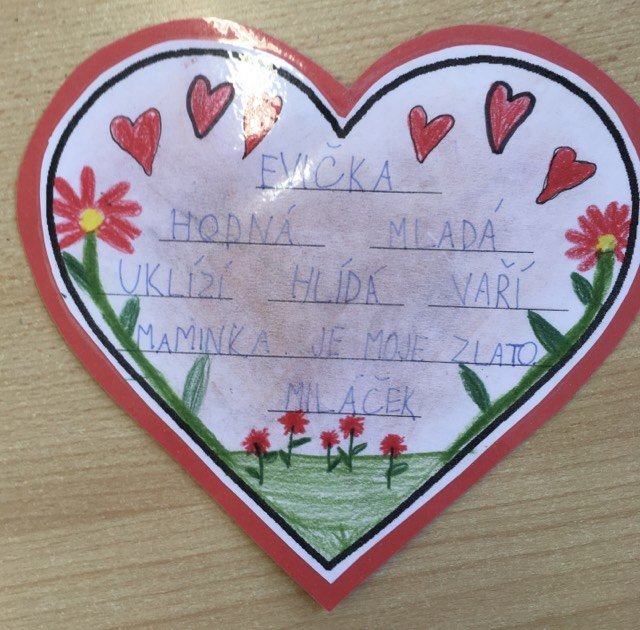 EVIČKA
HODNÁ MLADÁ
UKLÍZÍ HLÍDÁ VAŘÍ
MAMINKA JE MOJE ZLATO
MILÁČEK